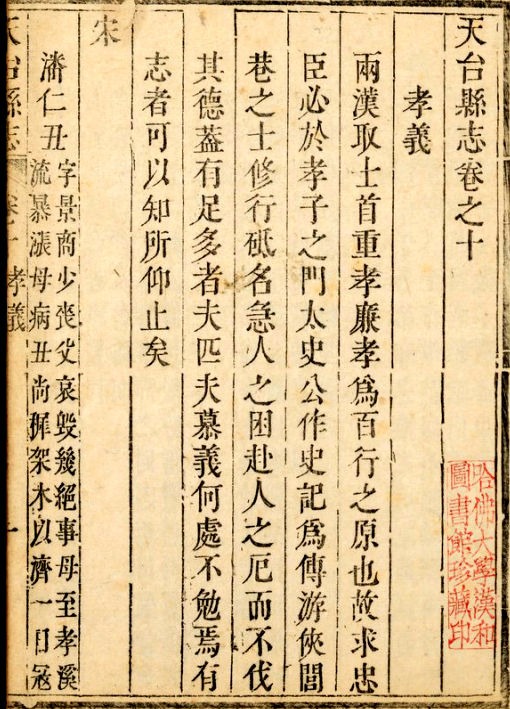 天台縣志卷之十
孝義
兩漢取士首重孝廉孝爲百行之原也故求忠
臣必於孝子之門太史公作史記爲傳游俠閭
巷之士修行砥名急人之困赴人之厄而不伐
其德蓋有足多者夫匹夫慕義何處不勉焉有
志者可以知所仰止矣
宋
潘仁丑
字景商少喪父哀毀幾絕事母至孝溪
流暴漲母病丑尚穉架木以濟一日寇
天台縣志
卷十
孝義
一
哈佛大學漢和
圖書館珍藏印